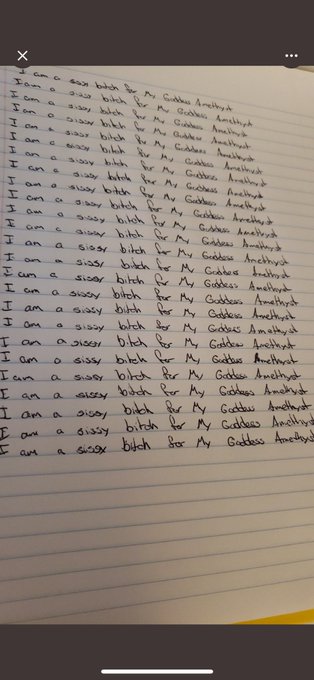 I am a sissy bitch for My Goddess Amethyst
I am a sissy bitch for My Goddess Amethyst
I am a sissy bitch for My Goddess Amethyst
I am a sissy bitch for My Goddess Amethyst
I am a sissy bitch for My Goddess Amethyst
I am a sissy bitch for My Goddess Amethyst
I am a sissy bitch for My Goddess Amethyst
I am a sissy bitch for My Goddess Amethyst
I am a sissy bitch for My Goddess Amethyst
I am a sissy bitch for My Goddess Amethyst
I am a sissy bitch for My Goddess Amethyst
I am a sissy bitch for My Goddess Amethyst
I am a sissy bitch for My Goddess Amethyst
I am a sissy bitch for My Goddess Amethyst
I am a sissy bitch for My Goddess Amethyst
I am a sissy bitch for My Goddess Amethyst
I am a sissy bitch for My Goddess Amethyst
I am a sissy bitch for My Goddess Amethyst
I am a sissy bitch for My Goddess Amethyst
I am a sissy bitch for My Goddess Amethyst
I am a sissy bitch for My Goddess Amethyst
I am a sissy bitch for My Goddess Amethyst
I am a sissy bitch for My Goddess Amethyst
I am a sissy bitch for My Goddess Amethyst
I am a sissy bitch for My Goddess Amethyst